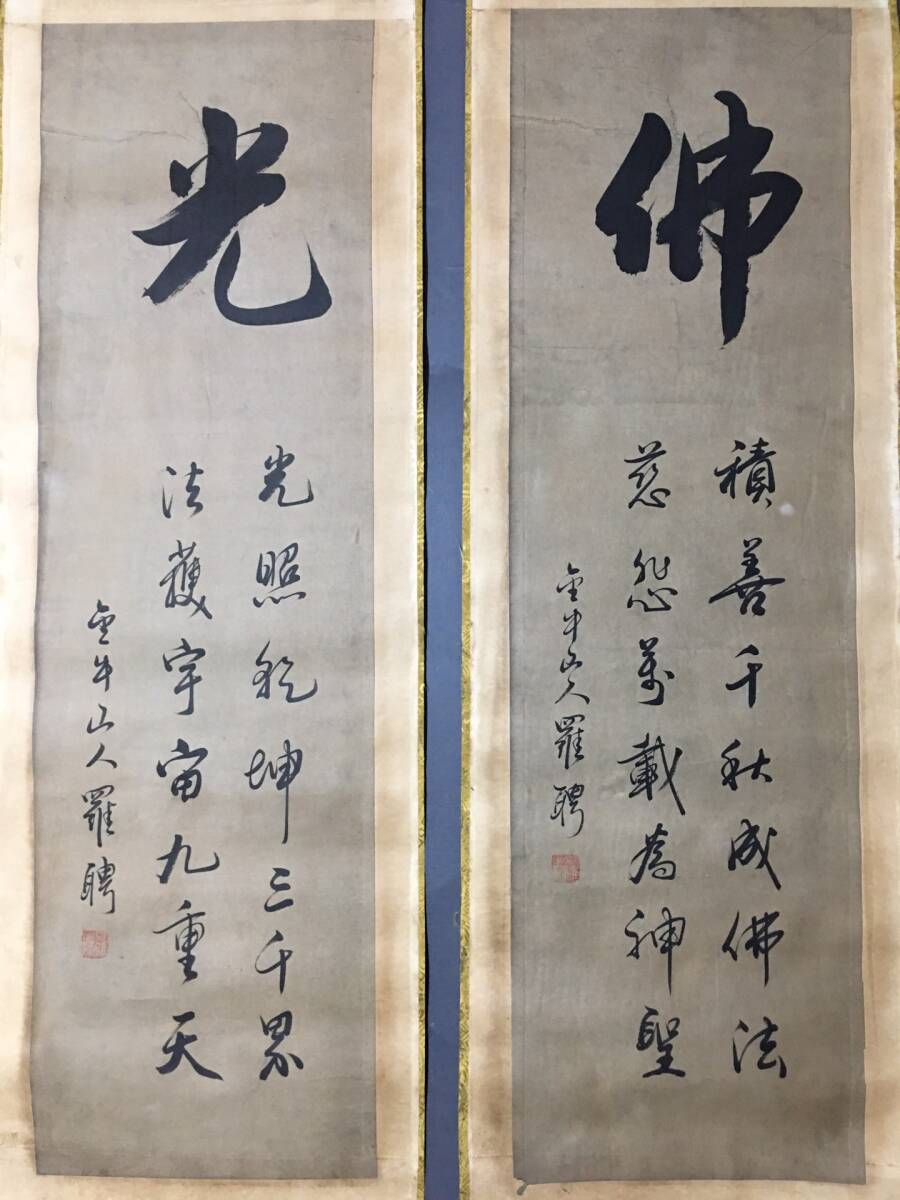 佛
積善千秋成佛法
慈悲萬載為神聖
金牛山人羅聘
光
光照乾坤三千界
法護宇宙九重天
金牛山人羅聘